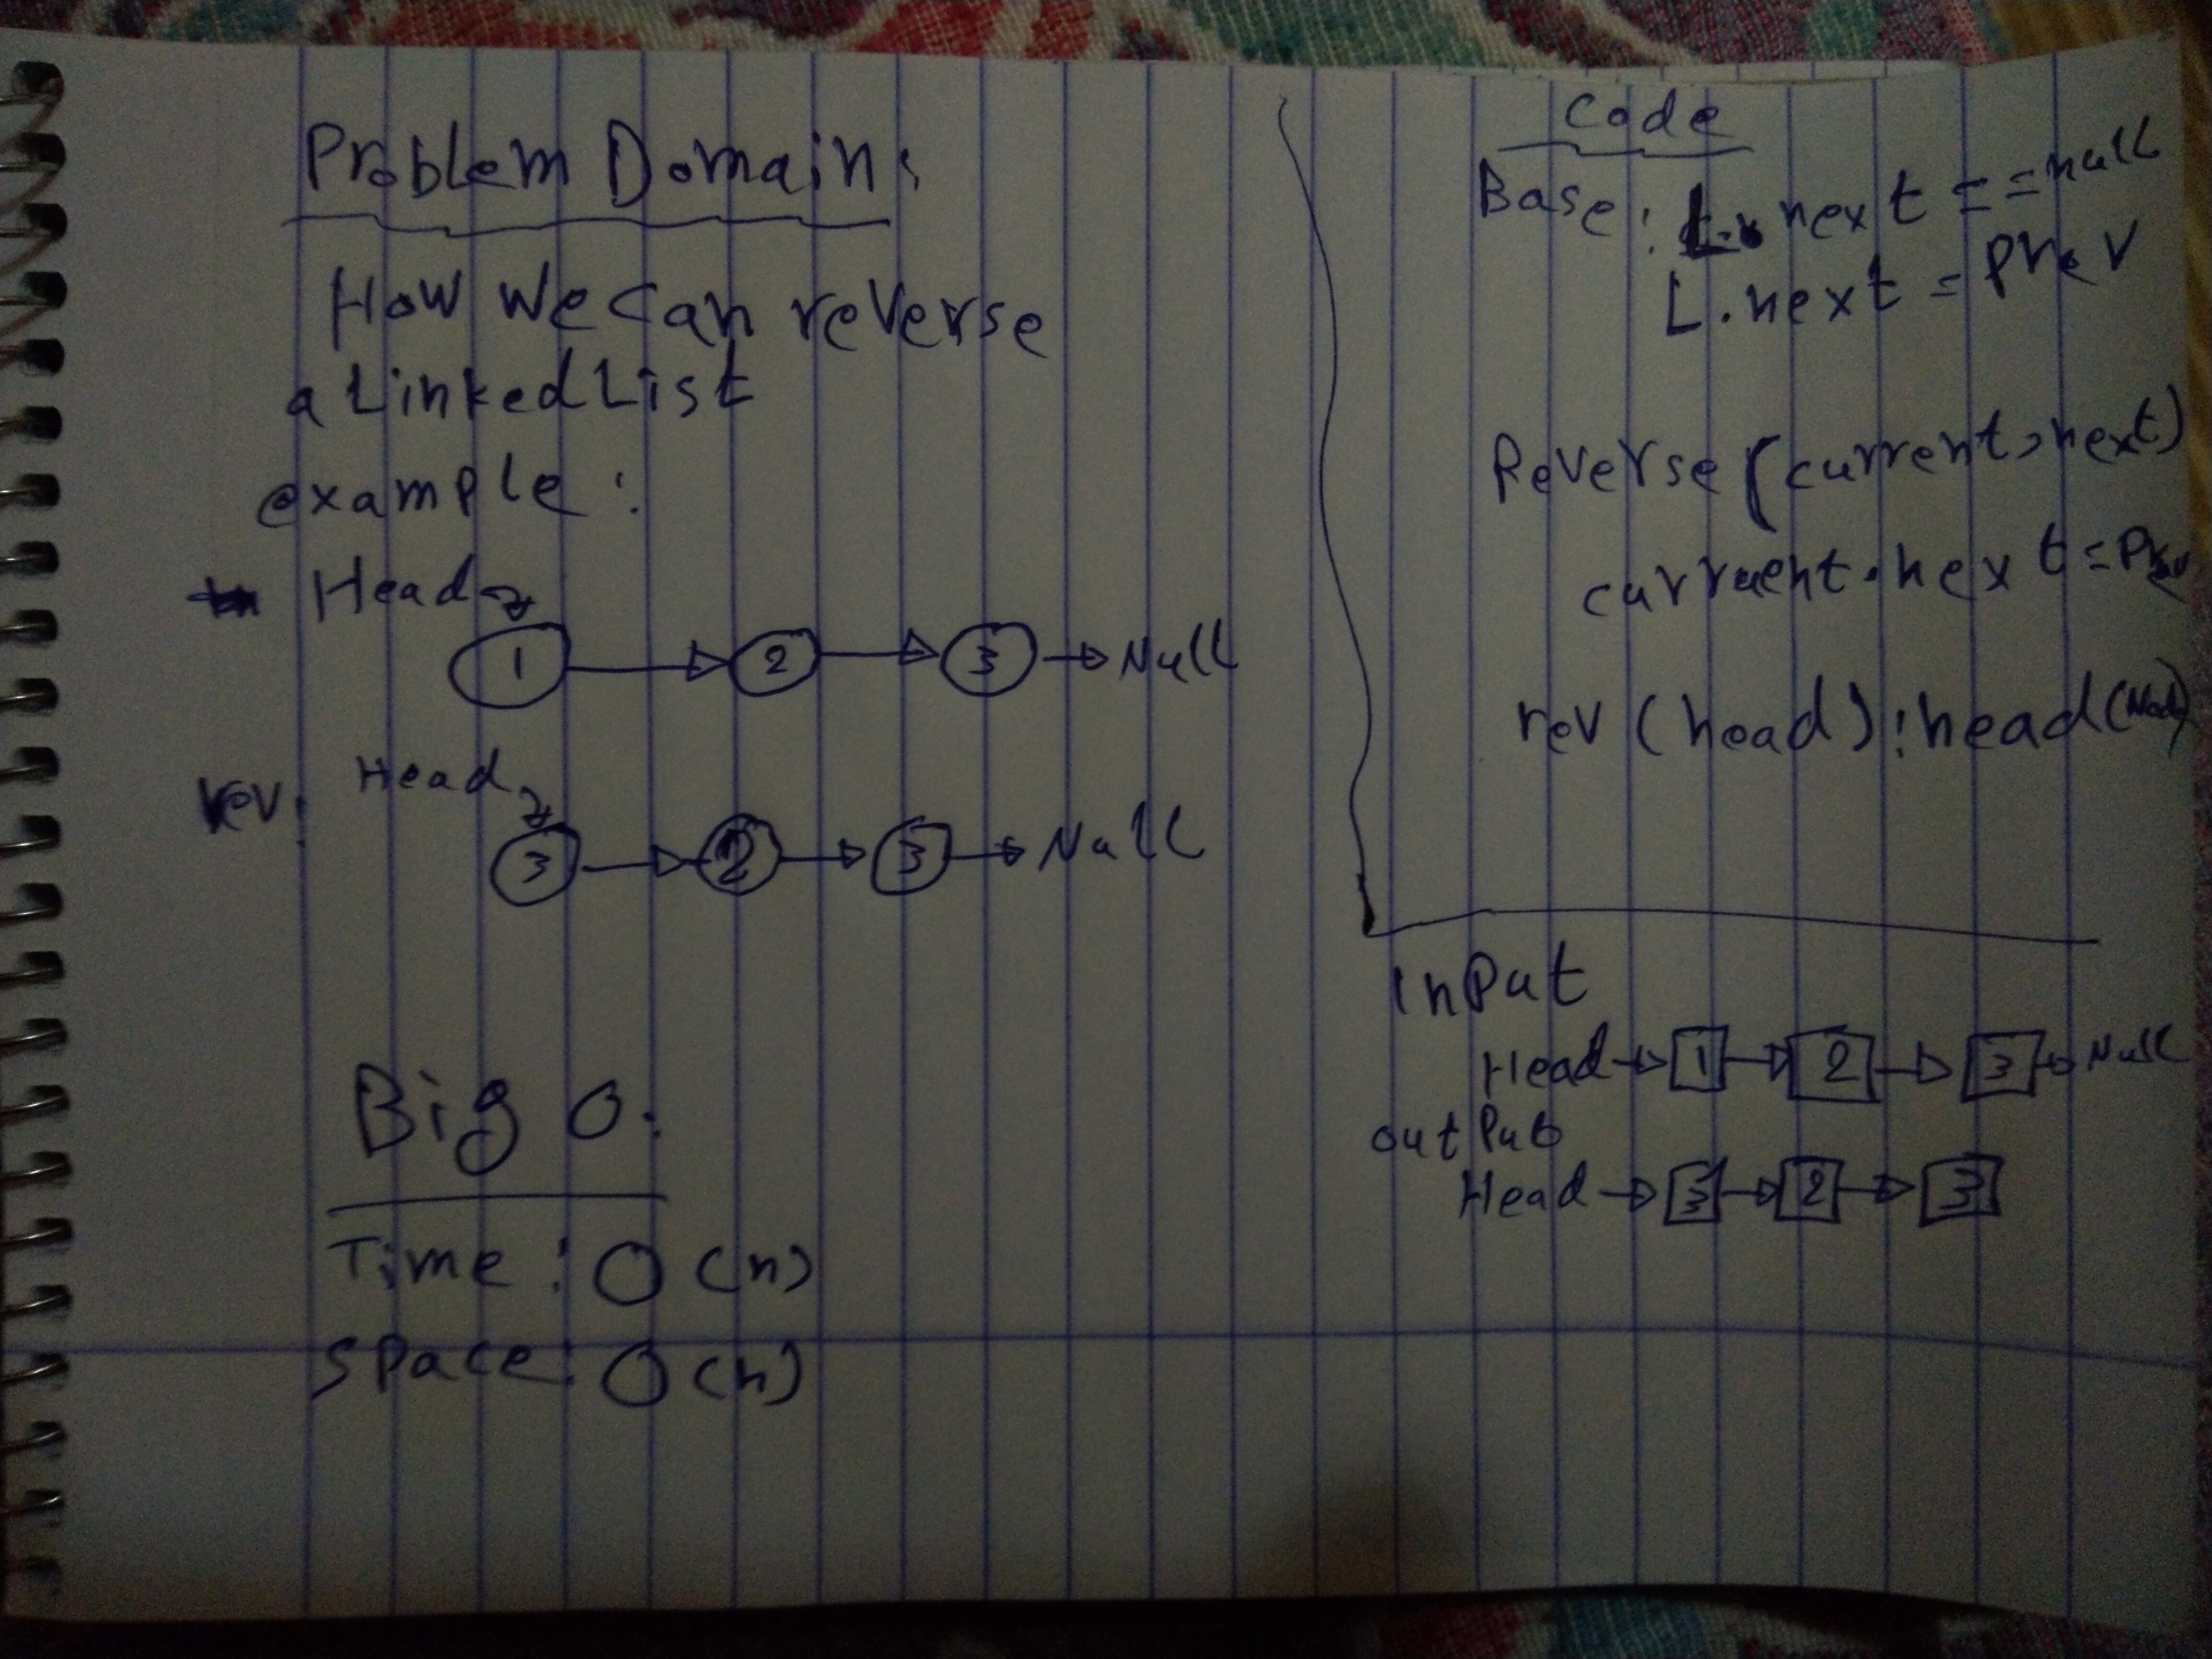 Problem Domain:
How we can reverse
a Linked List
example:
Head
1 2 3 Null
rev: Head
3 2 3 Null
Big O:
Time: O(n)
Space: O(n)
Code
Base: L. next == null
L.next = prev
Reverse (current, next)
curruent.next = Prev
rev (head): head (Node)
InPut
Head 1 2 3 Null
out Put
Head 3 2 3